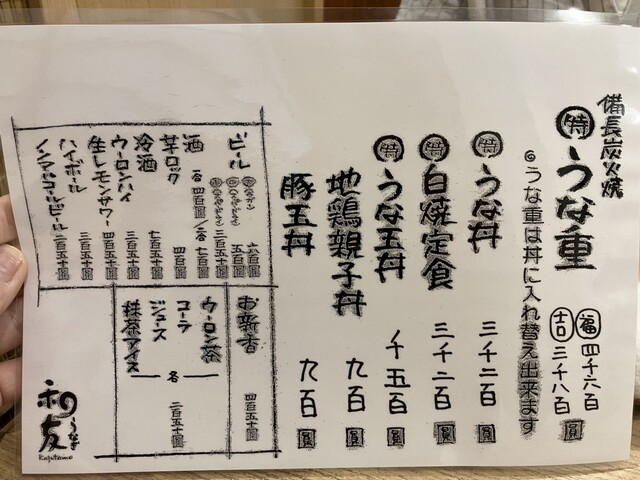 備長炭火焼
特 うな重
福 四千六百
吉 三千八百圓
◎うな重は丼に入れ替え出来ます
特 うな丼 三千二百圓
特 白焼定食 三千二百圓
特 うな玉丼 千五百圓
地鶏親子丼 九百圓
豚玉丼 九百圓
ビール
六百圓
五百圓
三百五十圓
酒
四百圓
七百圓
芋ロック 四百圓
冷酒 七百五十圓
ウーロンハイ 三百五十圓
生レモンサワー 四百圓
ハイボール 三百五十圓
ノンアルコールビール 三百五十圓
お新香 四百五十圓
ウーロン茶
コーラ
ジュース
抹茶アイス
各 二百五十圓
うなぎ
和友
Kazutomo